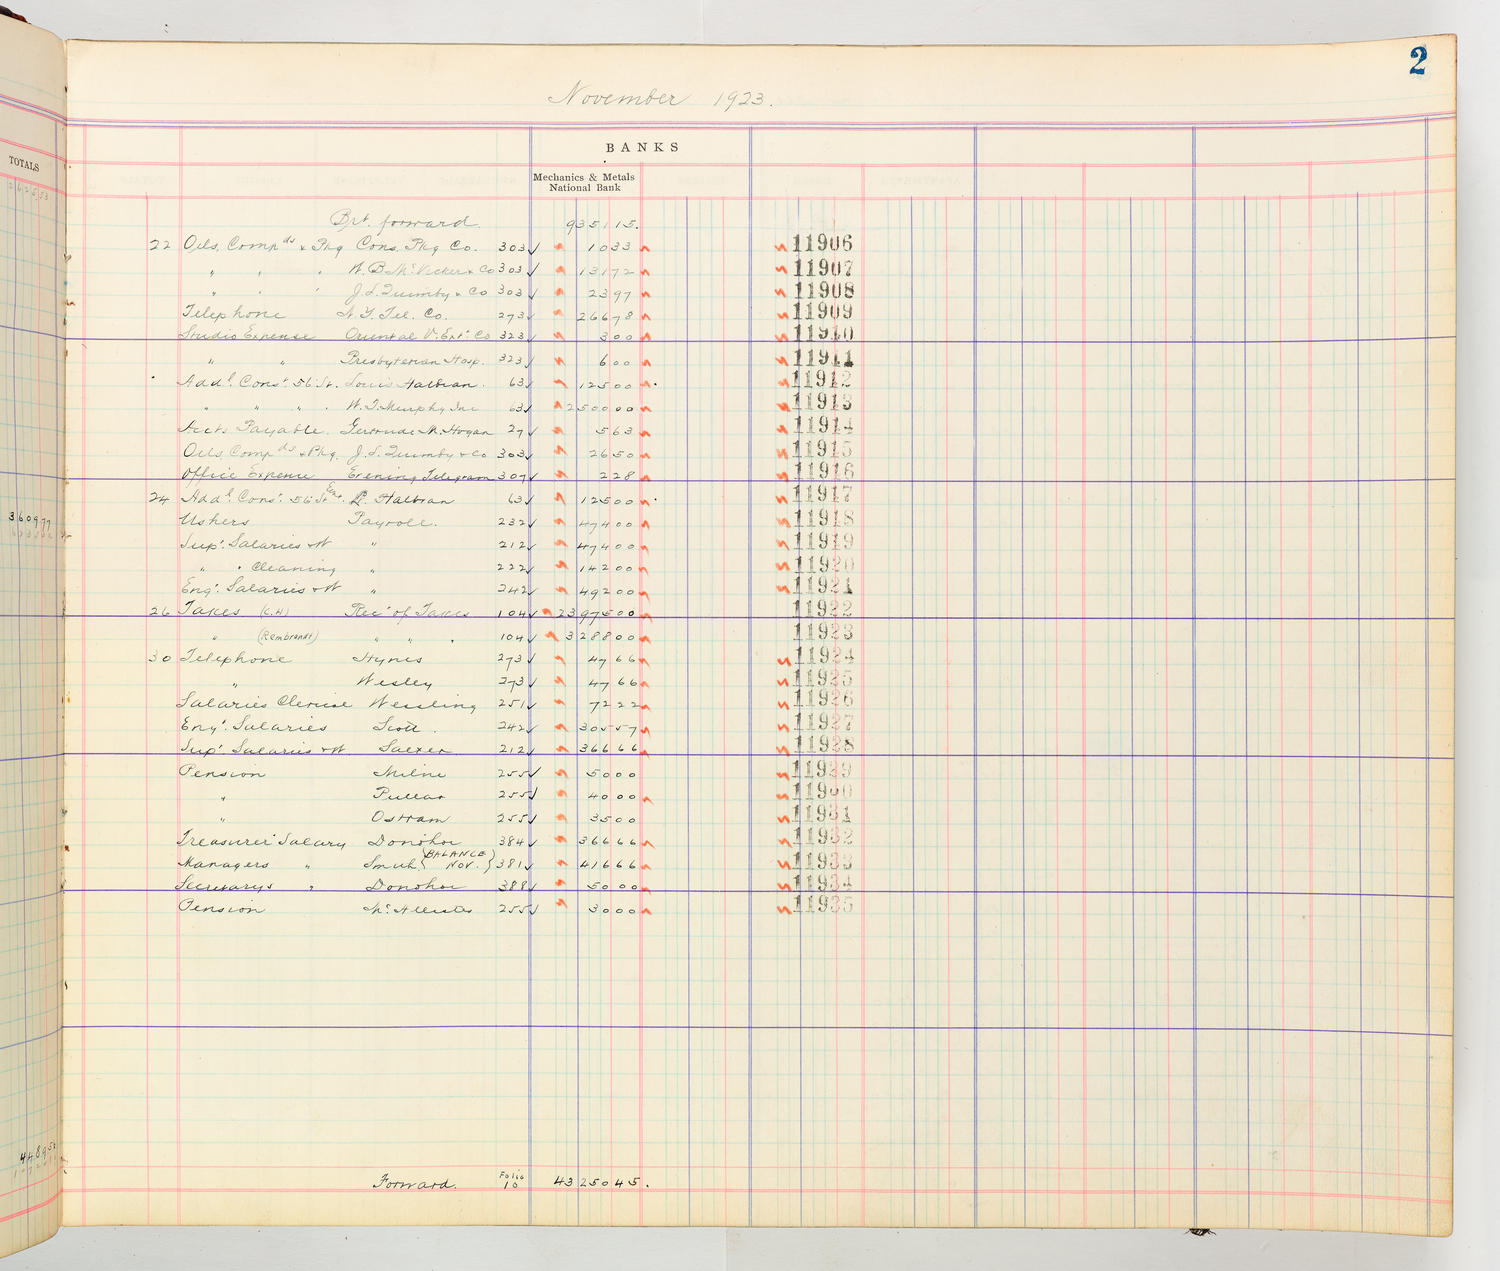 2
November 1923.
TOTALS
BANKS
Mechanics & Metals
National Bank
Brt. forward. 935115.
22 Oils, Compds & Pkg Cons. Pkg Co. 303 1033 11906
" " " W. B. McVicker & Co 303 13172 11907
" " " J. L. Quimby & Co 303 2397 11908
Telephone N. Y. Tel. Co. 273 26678 11909
Studio Expense Oriental V. Ext. Co 323 300 11910
" " Presbyterian Hosp. 323 600 11911
Addl. Const 56 St. Louis Halbran. 63 12500 11912
" " " " W. T. Murphy Inc 63 250000 11913
Accts Payable. Gertrude M. Hogan 27 563 11914
Oils, Compds & Pkg. J. L. Quimby & Co 303 2650 11915
Office Expense Evening Telegram 307 228 11916
24 Addl. Cons. 56 St L. Halbran 63 12500 11917
Ushers Payroll. 232 47400 11918
Supt. Salaries & W " 212 47400 11919
" " Cleaning " 222 14200 11920
Engr. Salaries & W " 242 49200 11921
26 Taxes (C.H) Rec. of Taxes 104 2397500 11922
" (Rembrandt) " " " 104 328800 11923
30 Telephone Hynes 273 4766 11924
" Wesley 273 4766 11925
Salaries Clerical Wessling 251 7222 11926
Engr. Salaries Scott. 242 30557 11927
Supt. Salaries & W. Saexer 212 36666 11928
Pension Milne 255 5000 11929
" Pullar 255 4000 11930
" Ostram 255 3500 11931
Treasurer Salary Donohoe 384 36666 11932
Managers " Smith (BALANCE NOV.) 381 41666 11933
Secretarys " Donohoe 388 5000 11934
Pension McAllister 255 3000 11935
360977
Forward. Folio 10 4325045.